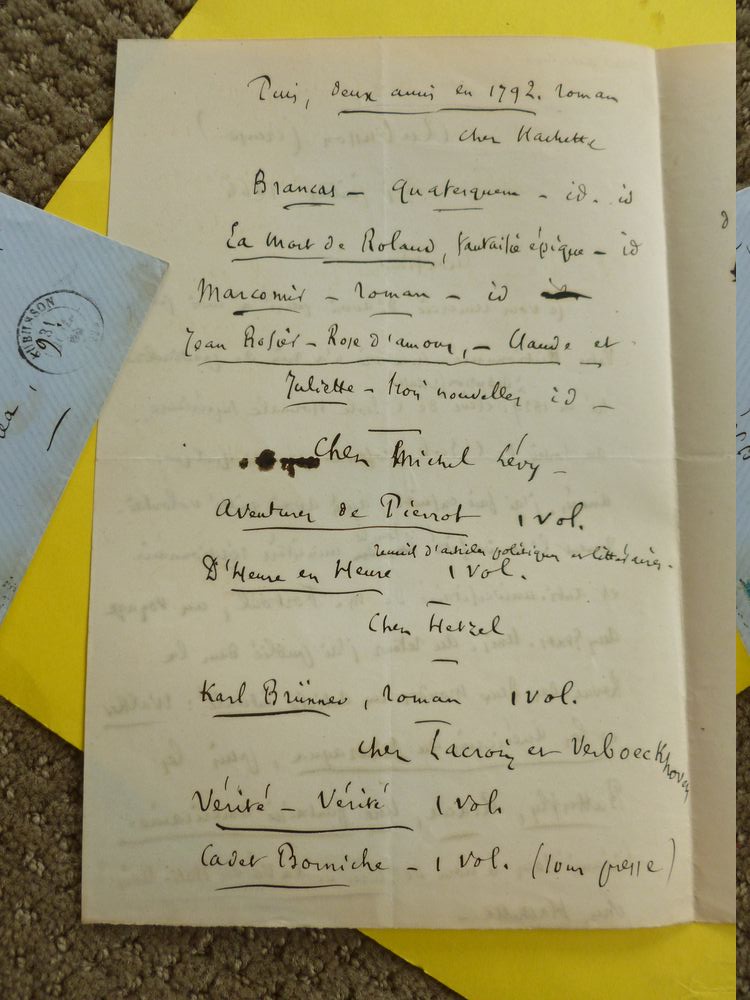 Puis, deux amis en 1792. roman
chez Hachette
Brancas — Quaterquem — id. id
La Mort de Roland, fantaisie épique — id
Marcomir — roman — id
Jean Rosier — Rose d'amour, — Claude et
Juliette — trois nouvelles id —
Chez Michel Lévy —
Aventures de Pierrot 1 vol.
recueil d'articles politiques et littéraires.
D'Heure en Heure 1 vol.
Chez Hetzel
Karl Brünner, roman 1 vol.
chez Lacroix et Verboeckhoven
Vérité — Vérité 1 vol.
Cadet Borniche — 1 vol. (sous presse)
AUBUSSON